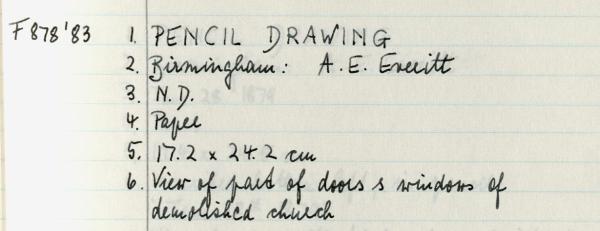 F878'83 1. PENCIL DRAWING
2. Birmingham: A. E. Everitt
3. N.D.
4. Paper
5. 17.2 x 24.2 cm
6. View of part of doors & windows of
demolished church